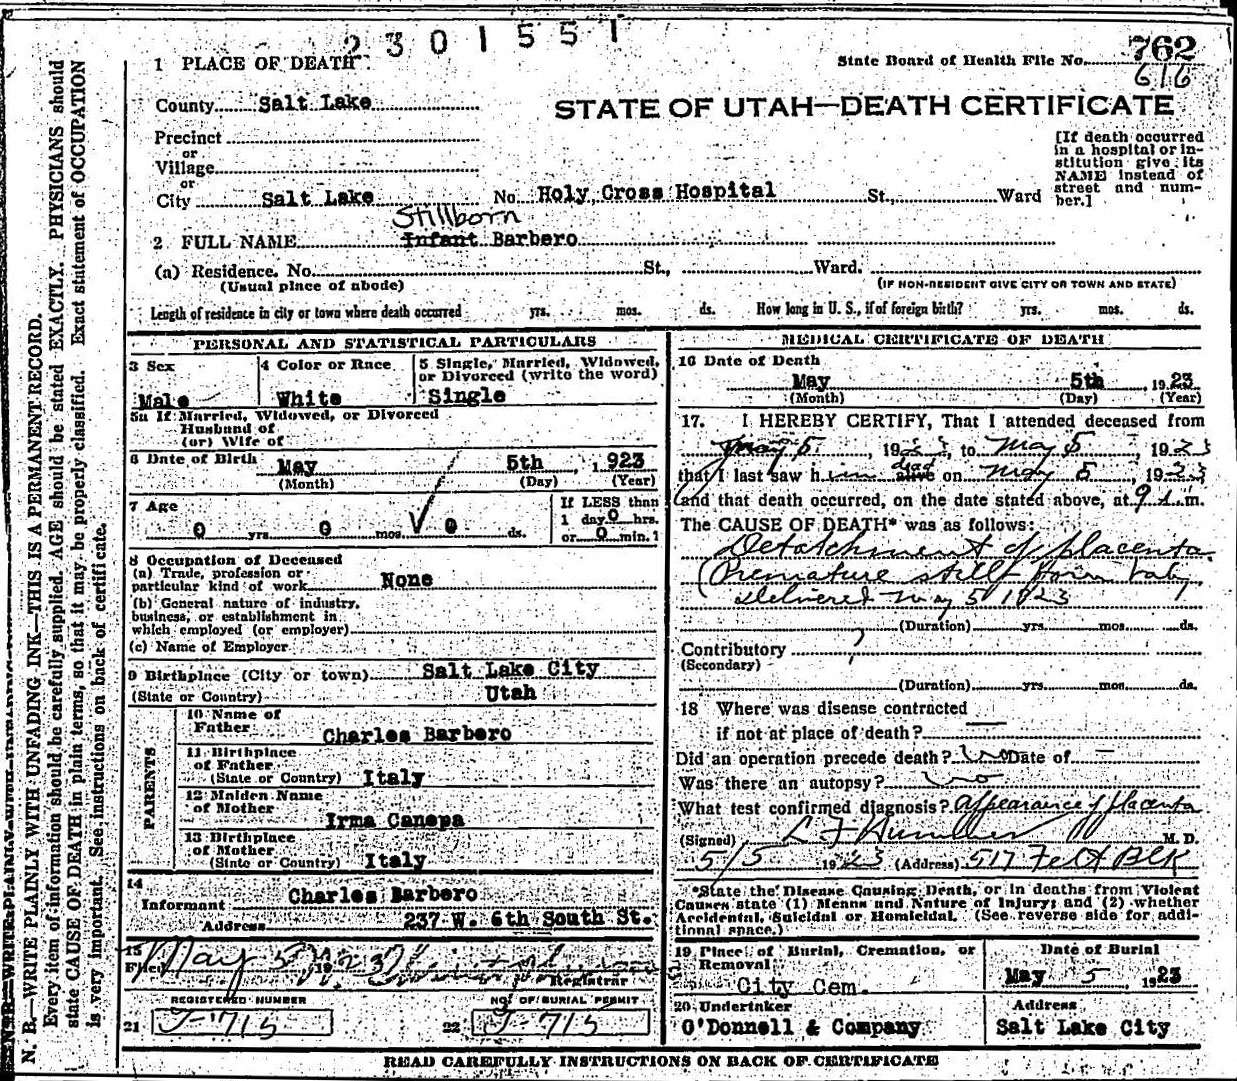 2301551
762
State Board of Health File No.
616
1 PLACE OF DEATH
County Salt Lake
STATE OF UTAH—DEATH CERTIFICATE
Precinct
or
Village
or
City Salt Lake No. Holy Cross Hospital St., Ward
[If death occurred in a hospital or in-
stitution give its
NAME instead of
street and num-
ber.]
Stillborn
2 FULL NAME Infant Barbero
(a) Residence. No. St., Ward.
(Usual place of abode) (IF NON-RESIDENT GIVE CITY OR TOWN AND STATE)
Length of residence in city or town where death occurred yrs. mos. ds. How long in U. S., if of foreign birth? yrs. mos. ds.
PERSONAL AND STATISTICAL PARTICULARS
3 Sex
Male
4 Color or Race
White
5 Single, Married, Widowed,
or Divorced (write the word)
Single
5a If Married, Widowed, or Divorced
Husband of
(or) Wife of
6 Date of Birth May 5th, 1923
(Month) (Day) (Year)
7 Age
0 yrs. 0 mos. 0 ds.
If LESS than
1 day 0 hrs.
or 0 min.?
8 Occupation of Deceased
(a) Trade, profession or
particular kind of work None
(b) General nature of industry,
business, or establishment in
which employed (or employer)
(c) Name of Employer
9 Birthplace (City or town) Salt Lake City
(State or Country) Utah
PARENTS
10 Name of
Father Charles Barbero
11 Birthplace
of Father
(State or Country) Italy
12 Maiden Name
of Mother
Irma Canepa
13 Birthplace
of Mother
(State or Country) Italy
14
Informant Charles Barbero
Address 237 W. 6th South St.
15
Filed May 5 1923
Registrar
REGISTERED NUMBER
21 J-715
NO. OF BURIAL PERMIT
22 J-715
MEDICAL CERTIFICATE OF DEATH
16 Date of Death
May 5th, 1923
(Month) (Day) (Year)
17. I HEREBY CERTIFY, That I attended deceased from
May 5, 1923, to May 5, 1923
that I last saw him alive dead on May 5, 1923
and that death occurred, on the date stated above, at 9 m.
The CAUSE OF DEATH* was as follows:
Detatchment of placenta
(Premature still born baby
delivered May 5 1923
(Duration) yrs. mos. ds.
Contributory
(Secondary)
(Duration) yrs. mos. ds.
18 Where was disease contracted
if not at place of death?
Did an operation precede death? No Date of —
Was there an autopsy? No
What test confirmed diagnosis? Appearance of placenta
(Signed) L F Hummer M. D.
5/5 1923 (Address) 517 Felt Blk
*State the Disease Causing Death, or in deaths from Violent
Causes state (1) Means and Nature of Injury; and (2) whether
Accidental, Suicidal or Homicidal. (See reverse side for addi-
tional space.)
19 Place of Burial, Cremation, or
Removal
City Cem.
Date of Burial
May 5, 1923
20 Undertaker
O'Donnell & Company
Address
Salt Lake City
READ CAREFULLY INSTRUCTIONS ON BACK OF CERTIFICATE
N. B.—WRITE PLAINLY WITH UNFADING INK—THIS IS A PERMANENT RECORD.
Every item of information should be carefully supplied. AGE should be stated EXACTLY. PHYSICIANS should
state CAUSE OF DEATH in plain terms, so that it may be properly classified. Exact statement of OCCUPATION
is very important. See instructions on back of certificate.